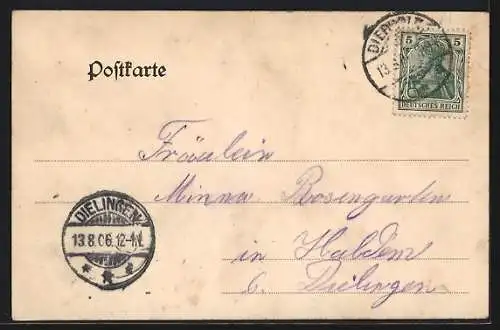 Postkarte
DIEPHOLZ
13
5 5
DEUTSCHES REICH
Fräulein
Minna Rosengarten
in Haldem
b. Dielingen
DIELINGEN
13.8.06.12-1N